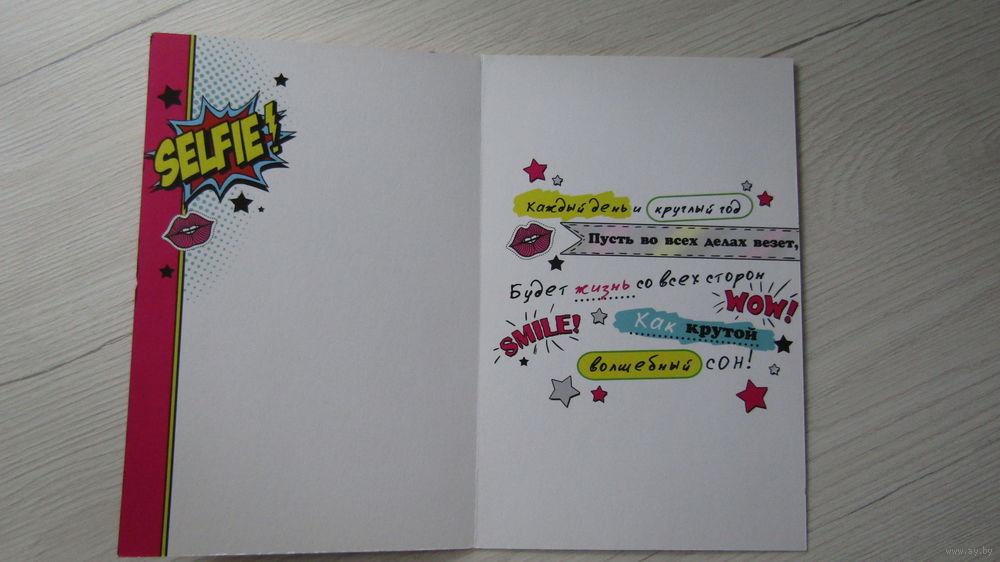 SELFIE!
Каждый день и круглый год
Пусть во всех делах везет,
Будет жизнь со всех сторон
WOW!
SMILE!
Как крутой
волшебный сон!
www.ay.by